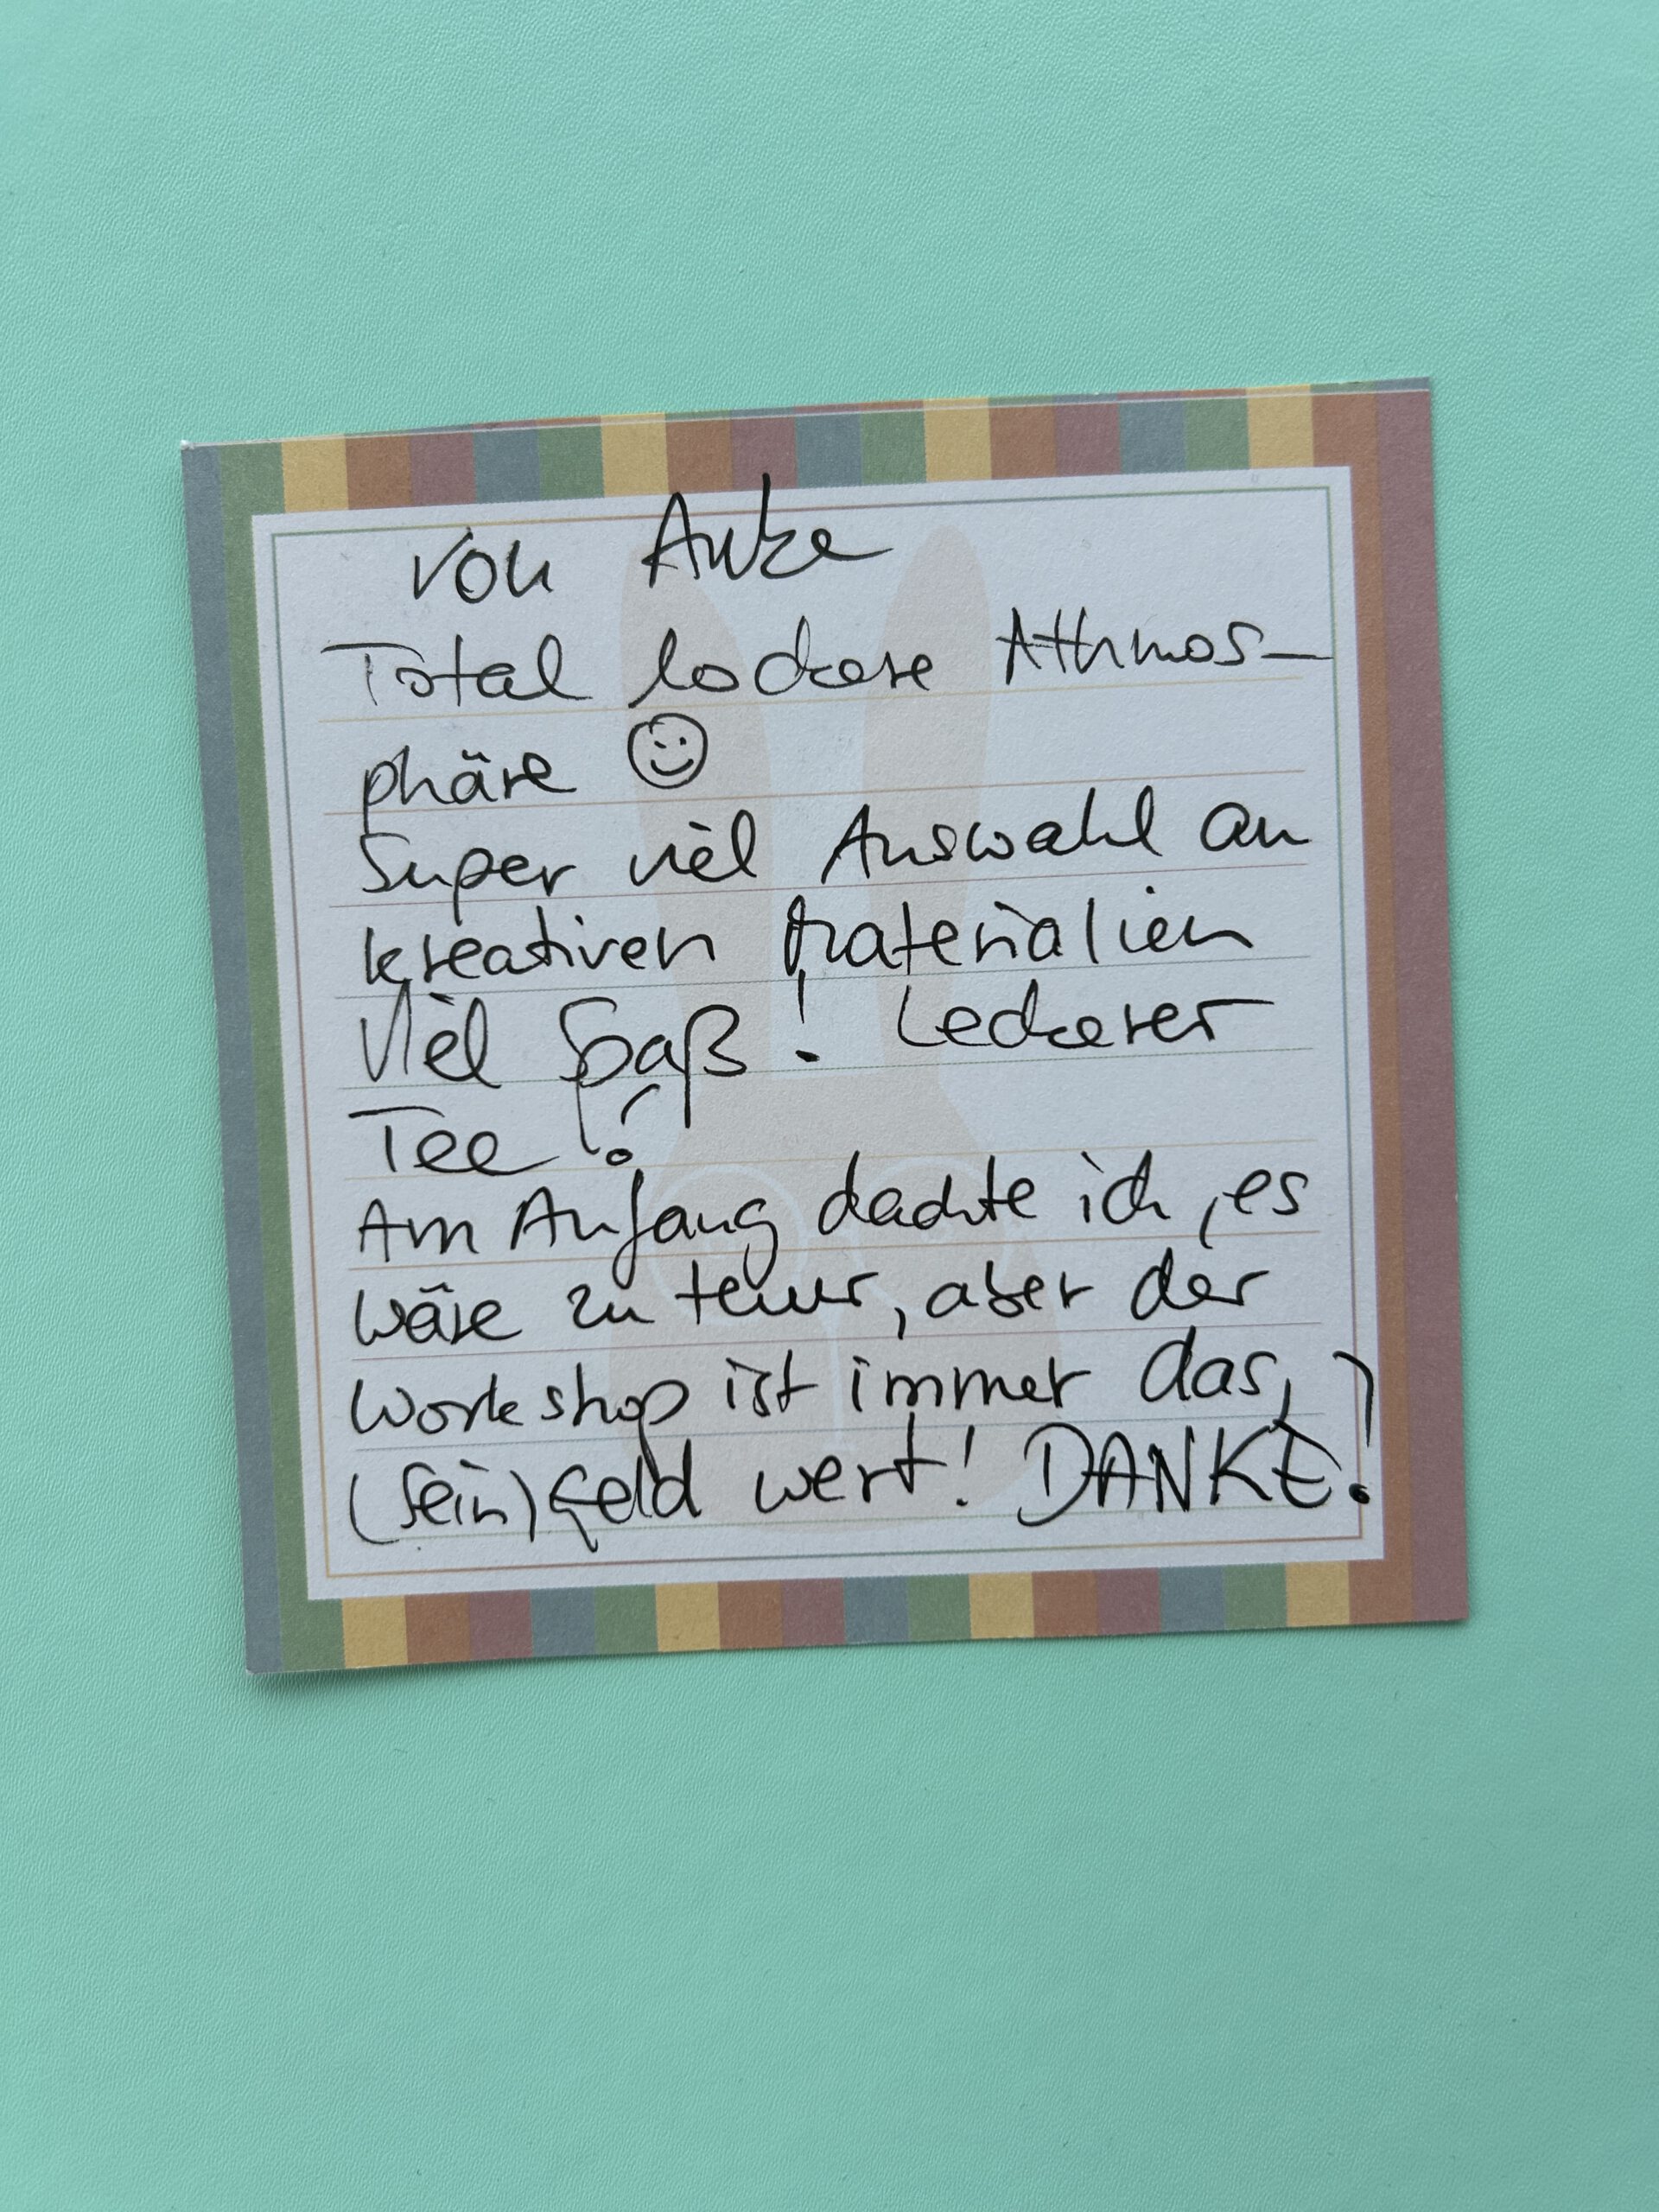 von Anke
Total lockere Athmos-
phäre ☺
Super viel Auswahl an
kreativen Materialien
Viel Spaß! Leckerer
Tee!
Am Anfang dachte ich, es
wäre zu teuer, aber der
Workshop ist immer das,
(sein) Geld wert! DANKE!